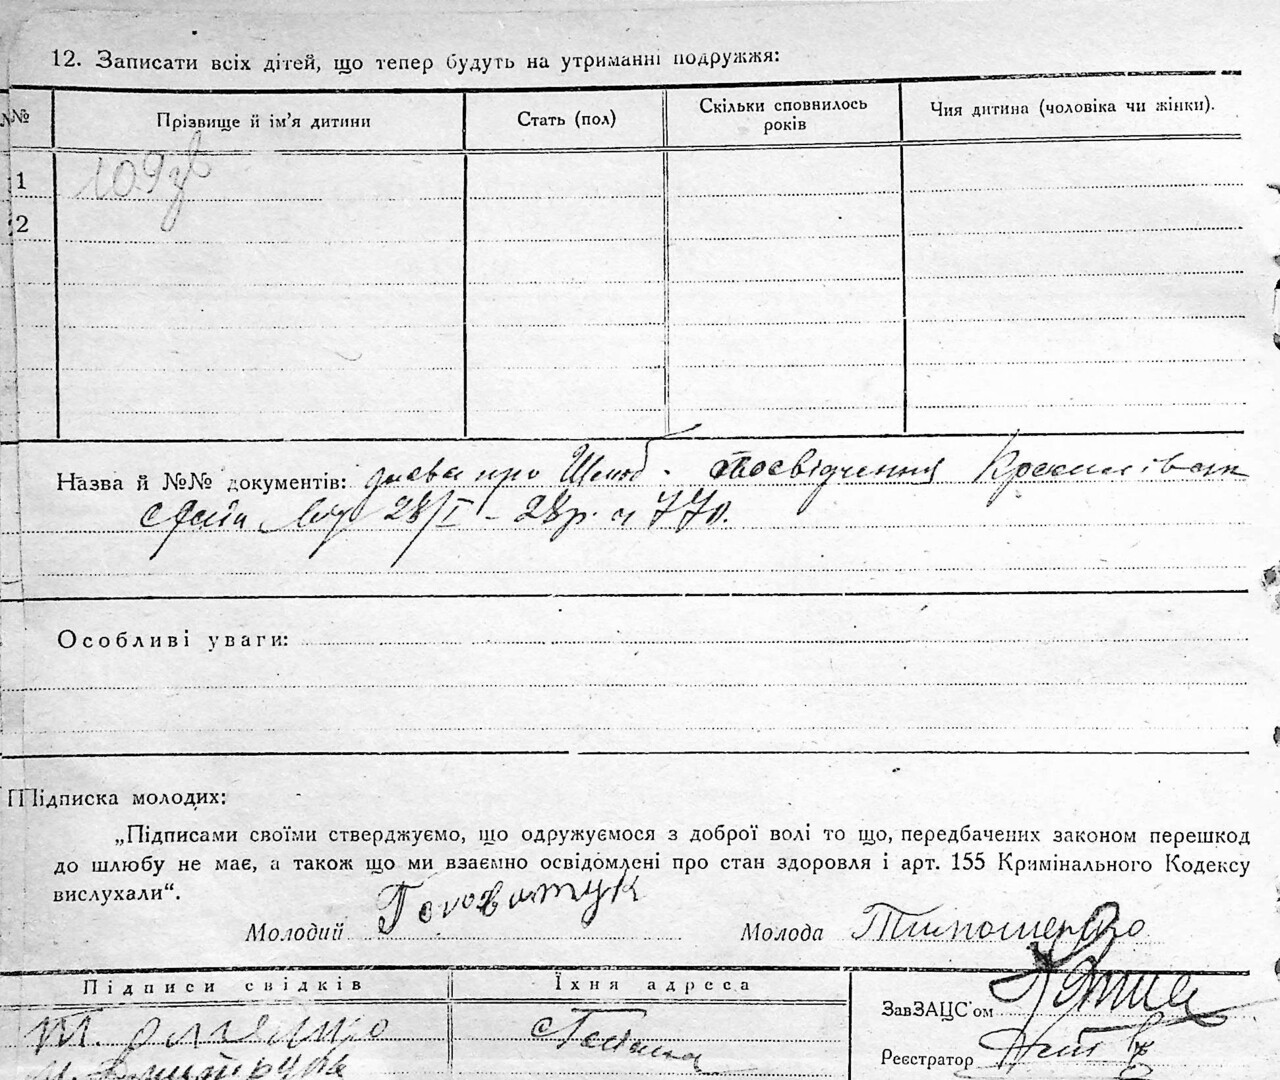 12. Записати всіх дітей, що тепер будуть на утриманні подружжя:
№№
Прізвище й ім'я дитини
Стать (пол)
Скільки сповнилось
років
Чия дитина (чоловіка чи жінки).
1
109
2
Назва й №№ документів: про Шлюб. посвідчення
28/I – 28р. 770.
Особливі уваги:
Підписка молодих:
„Підписами своїми стверджуємо, що одружуємося з доброї волі то що, передбачених законом перешкод
до шлюбу не має, а також що ми взаємно освідомлені про стан здоровля і арт. 155 Кримінального Кодексу
вислухали“.
Молодий Головатюк Молода Тимошенко
Підписи свідків
Їхня адреса
ЗавЗАЦС'ом
Реєстратор